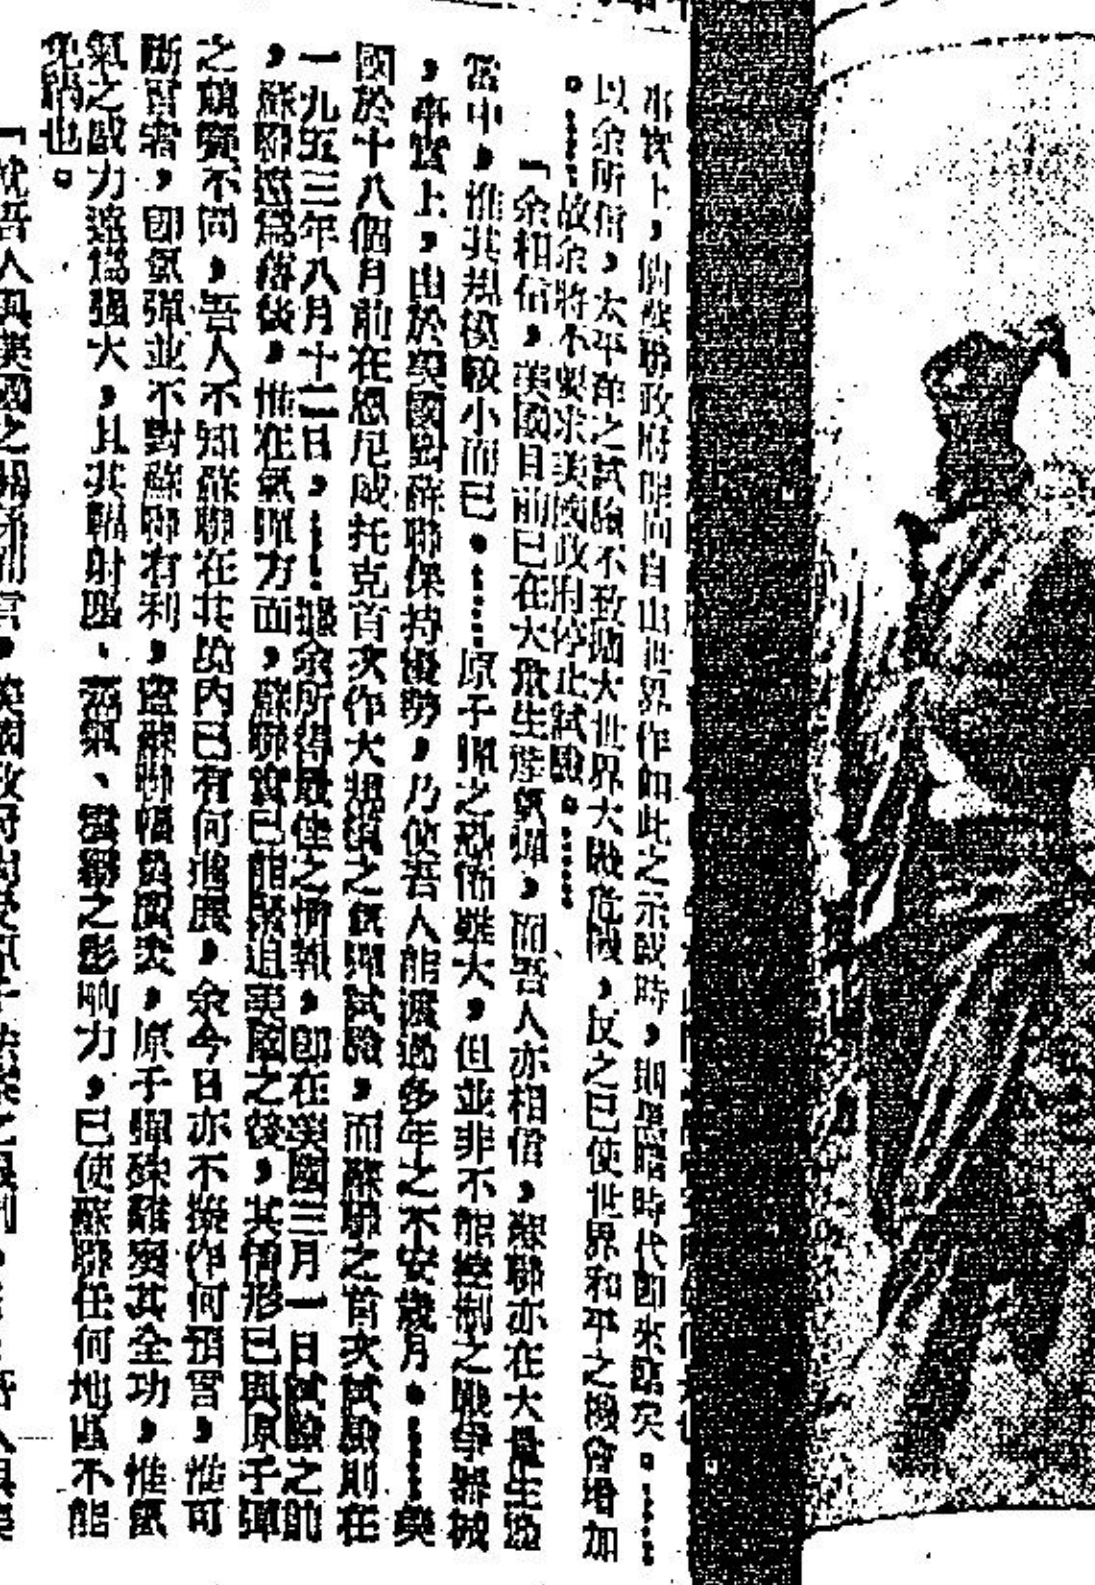 事實上，倘蘇聯政府能向自由世界作如此之示威時，則黑暗時代卽來臨矣。……
以余所信，太平洋之試驗不致增大世界大戰危機，反之已使世界和平之機會增加
。……故余將不要求美國政府停止試驗。……
「余相信，美國目前已在大量生產氫彈，而吾人亦相信，蘇聯亦在大量生產
當中，惟其規模較小而已。……原子彈之恐怖雖大，但並非不能控制之戰爭器械
，事實上，由於美國對蘇聯保持優勢，乃使吾人能渡過多年之不安歲月。……美
國於十八個月前在恩尼威托克首次作大規模之氫彈試驗，而蘇聯之首次試驗則在
一九五三年八月十二日，……據余所得最佳之情報，卽在美國三月一日試驗之前
，蘇聯遠爲落後，惟在氫彈方面，蘇聯實已能緊追美國之後，其情形已與原子彈
之競賽不同，吾人不知蘇聯在其境內已有何進展，余今日亦不擬作何預言，惟可
斷言者，卽氫彈並不對蘇聯有利，蓋蘇聯幅員廣大，原子彈殊難奏其全功，惟氫
氣之威力遠爲强大，且其輻射塵、蒸氣、之影响力，已使蘇聯任何地區不能
免禍也。
「就吾人與美國之關係而言，英國政府